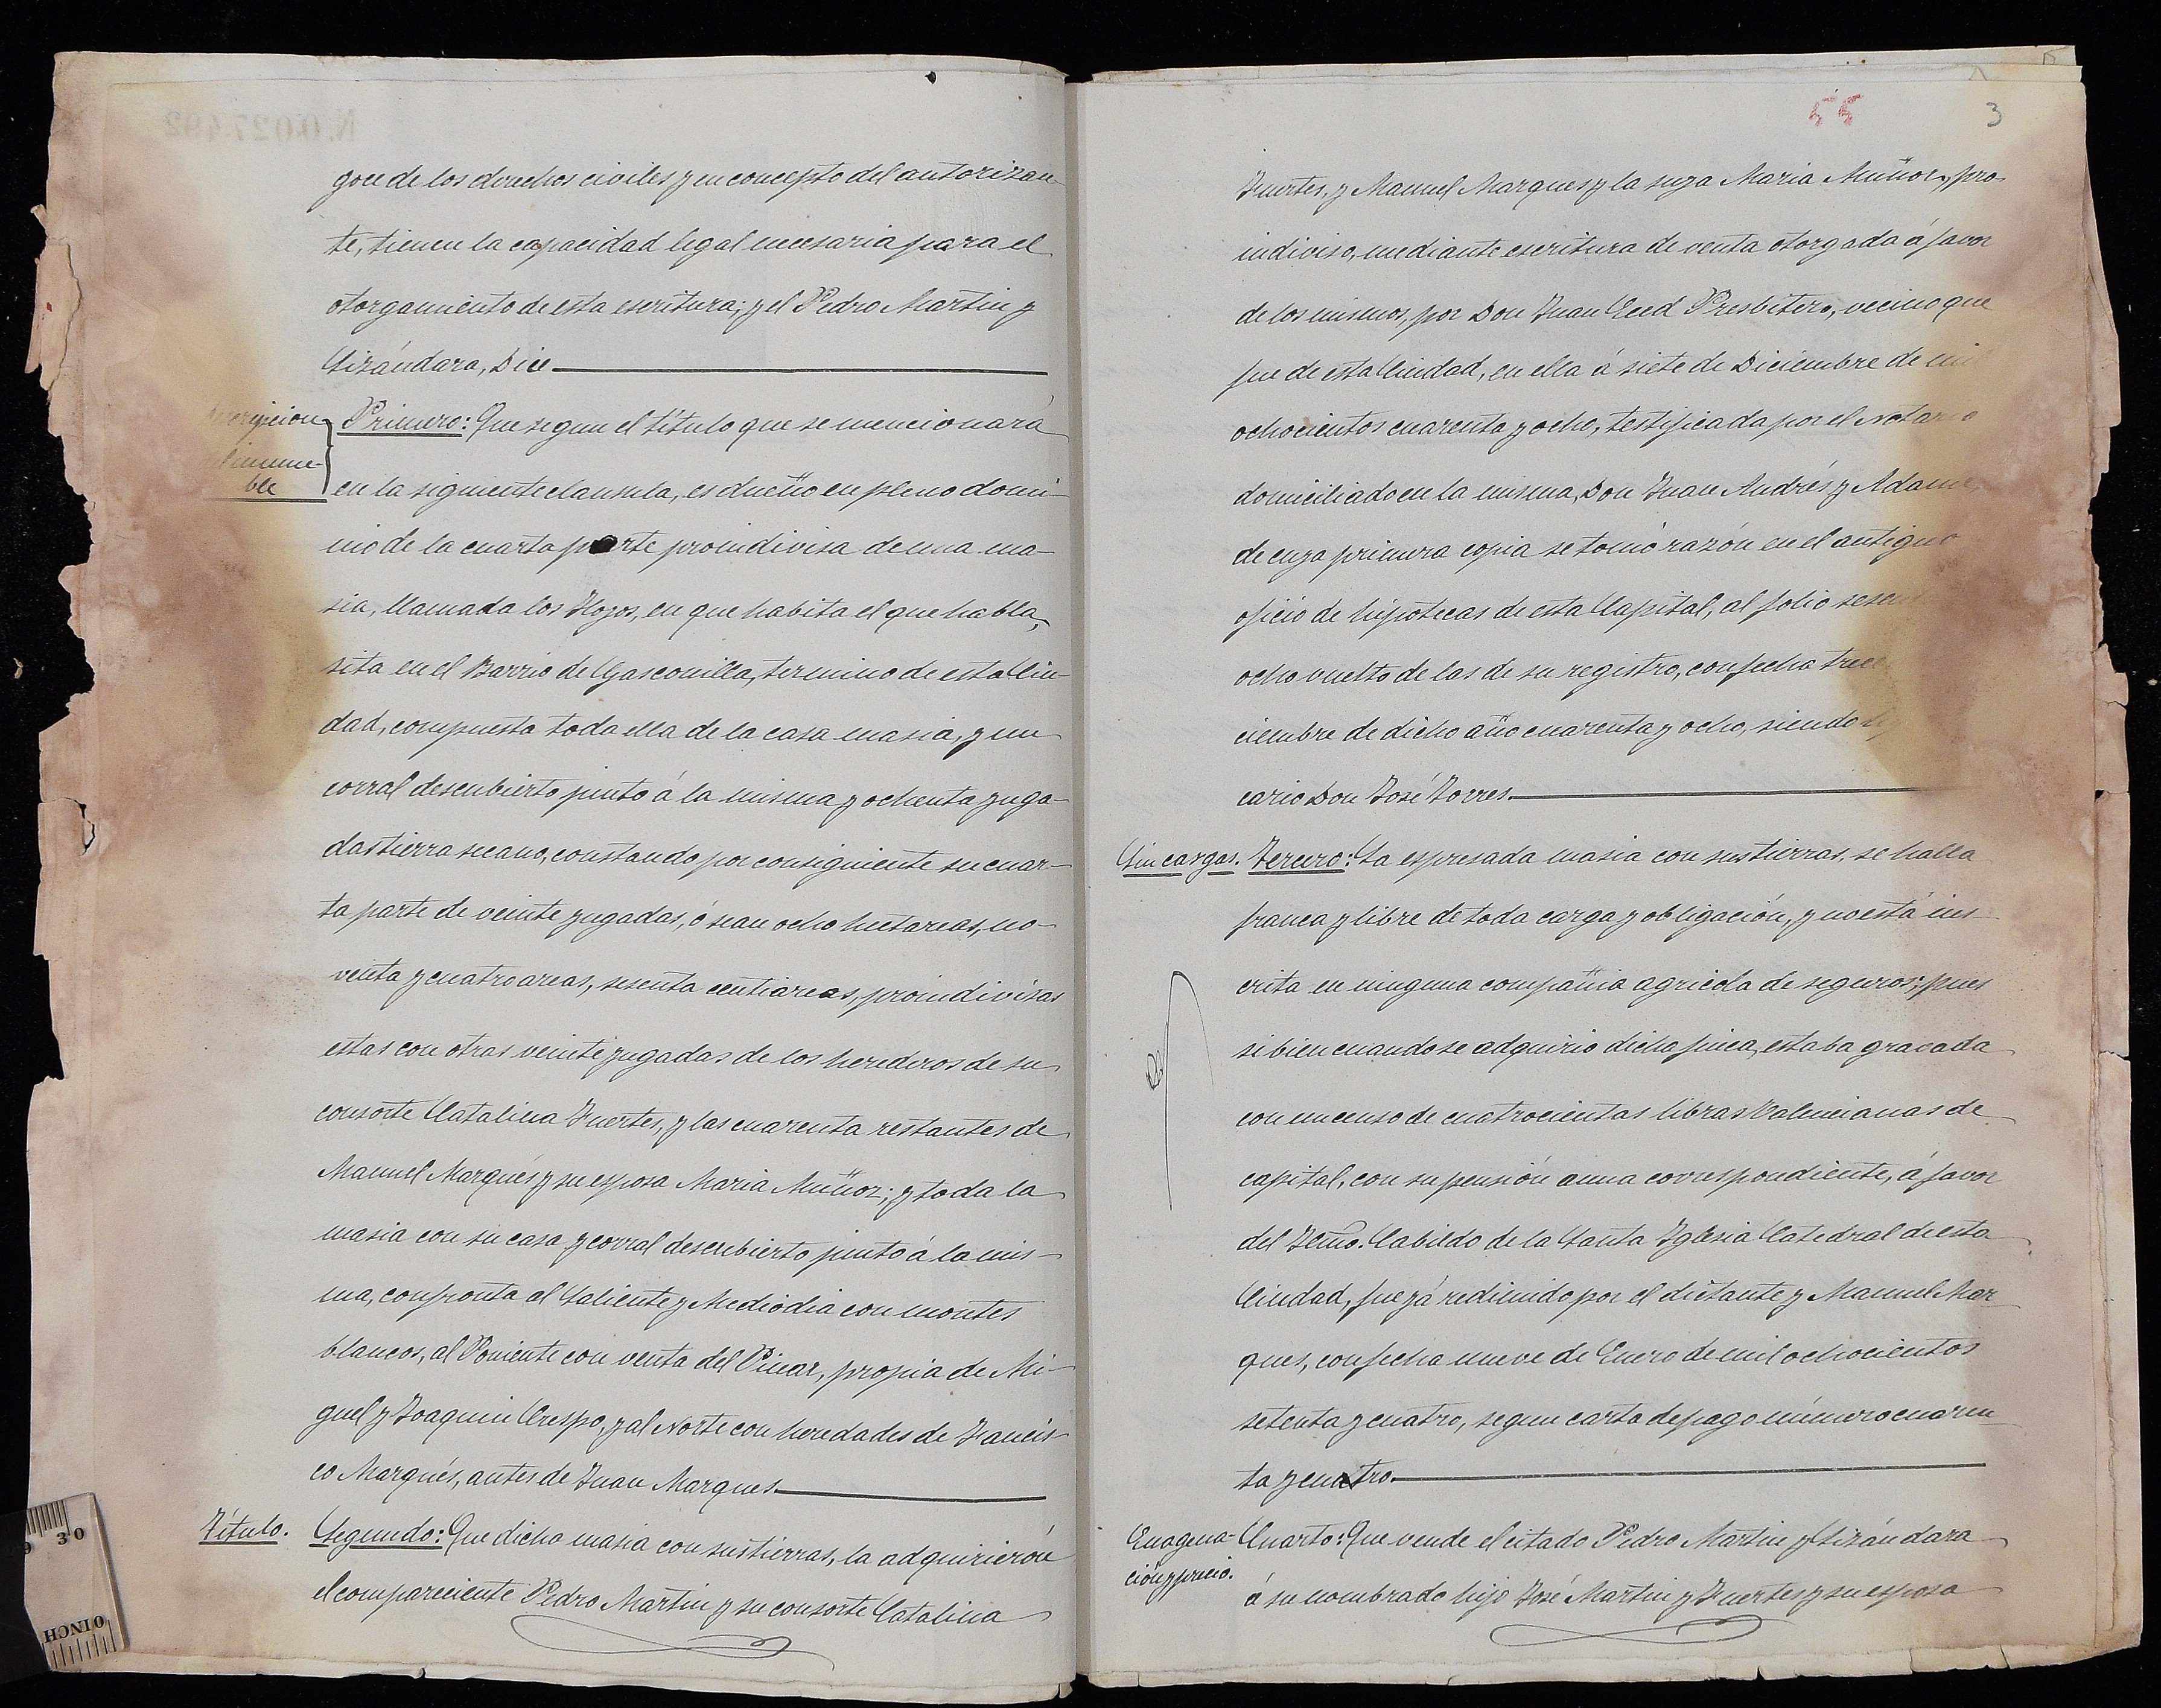 N.0.027.492
goce de los derechos civiles y en concepto del autorizan-
te, tienen la capacidad legal necesaria para el
otorgamiento de esta escritura; y el Pedro Martin y
Lizándara, Dice
Primero: Que segun el título que se mencionará
en la siguiente clausula, es dueño en pleno domi-
nio de la cuarta parte proindivisa de una ma-
sia, llamada los Hoyos, en que habita el que habla,
sita en el Barrio de Gasconilla, termino de esta Ciu-
dad, compuesta toda ella de la casa masia, y un
corral descubierto junto á la misma y ochenta yuga-
das tierra secano, constando por consiguiente su cuar-
ta parte de veinte yugadas, ó sean ocho hectareas, no-
venta y cuatro areas, sesenta centiareas, proindivisas
estas con otras veinte yugadas de los herederos de su
consorte Catalina Fuertes, y las cuarenta restantes de
Manuel Marqués y su esposa Maria Muñoz; y toda la
masia con su casa y corral descubierto junto á la mis-
ma, confronta al Saliente y Mediodia con montes
blancos, al Poniente con venta del Pinar, propia de Mi-
guel y Joaquin Crespo, y al Norte con heredades de Francis-
co Marqués, antes de Juan Marques.
Título. Segundo: Que dicha masia con sus tierras, la adquirierón
el compareciente Pedro Martin y su consorte Catalina
55 3
Fuertes, y Manuel Marques y la suya Maria Muñoz, pro-
indiviso, mediante escritura de venta otorgada á favor
de los mismos, por Don Juan Reed Presbitero, vecino que
fue de esta Ciudad, en ella á siete de Diciembre de mil
ochocientos cuarenta y ocho, testificada por el Notario
domiciliado en la misma, Don Juan Andrés y Adam
de cuya primera copia se tomó razón en el antiguo
oficio de hipotecas de esta Capital, al folio
ocho vuelto de las de su registro, con fecha trece
ciembre de dicho año cuarenta y ocho, siendo
cario Don José Torres.
Sin cargas. Tercero: La espresada masia con sus tierras, se halla
franca y libre de toda carga y obligación, y no está ins-
crita en ninguna compañia agricola de seguros; pues
si bien cuando se adquirio dicha finca, estaba gravada
con un censo de cuatrocientas libras Valencianas de
capital, con su pensión anua correspondiente, á favor
del Ilmo. Cabildo de la Santa Iglesia Catedral de esta
Ciudad, fue yá redimido por el dictante y Manuel Mar
ques, con fecha nueve de Enero de mil ochocientos
setenta y cuatro, segun carta de pago número cuaren
ta y cuatro.
Enagena- Cuarto: Que vende el citado Pedro Martin y Lizándara
ción y precio. á su nombrado hijo José Martin y Fuertes y su esposa
30
INCH